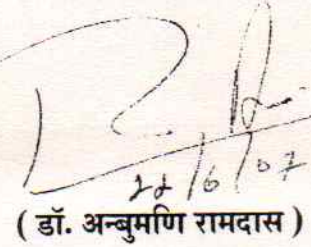 22/6/07
( डॉ. अन्बुमणि रामदास )